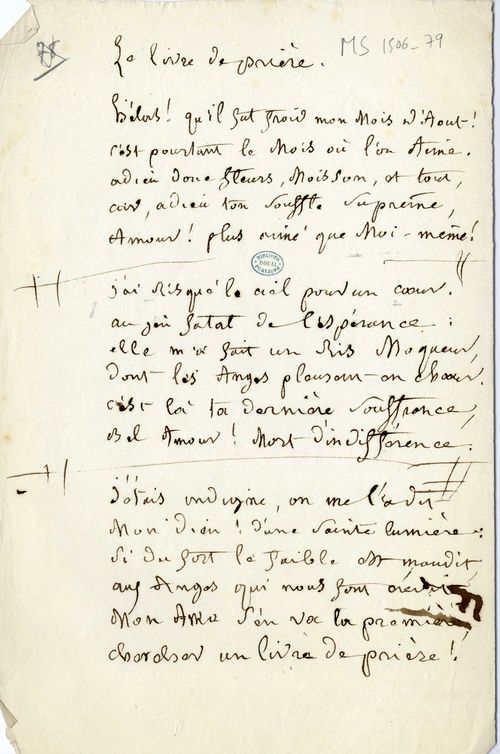 Le livre de prière.
MS 1506-79
Hélas ! qu'il fut froid mon Mois d'Aout !
c'est pourtant le Mois où l'on Aime.
adieu donc fleurs, Moisson, et tout,
car, adieu ton souffle suprême,
Amour ! plus aimé que Moi-même !
BIBLIOTH
DOUAI
PUBLIQUE
j'ai Risqué le ciel pour un cœur.
au jeu fatal de l'espérance :
elle m'a fait un Ris Moqueur,
dont les Anges pleurent en chœur.
c'est là ta dernière souffrance,
Bel Amour ! Mort d'indifférence.
j'étais indigne, on me l'a dit
Mon Dieu ! d'une sainte lumière :
Si du fort le faible est maudit,
aux Anges qui nous font crédit
Mon Ame s'en va la première,
chercher un livre de prière !